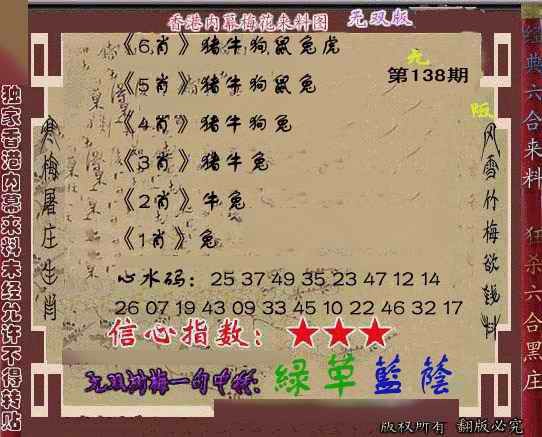 香港内幕梅花来料图 无双版
《6肖》猪牛狗鼠兔虎
无
第138期
《5肖》猪牛狗鼠兔
版
《4肖》猪牛狗兔
《3肖》猪牛兔
《2肖》牛兔
《1肖》兔
心水码：25 37 49 35 23 47 12 14
26 07 19 43 09 33 45 10 22 46 32 17
信心指数：★★★
一句中特：綠草藍蔭
版权所有 翻版必究
独家香港内幕来料未经允许不得转贴
寒梅屠庄生肖
风雪竹梅欲钱料
经典六合来料
狂杀六合黑庄